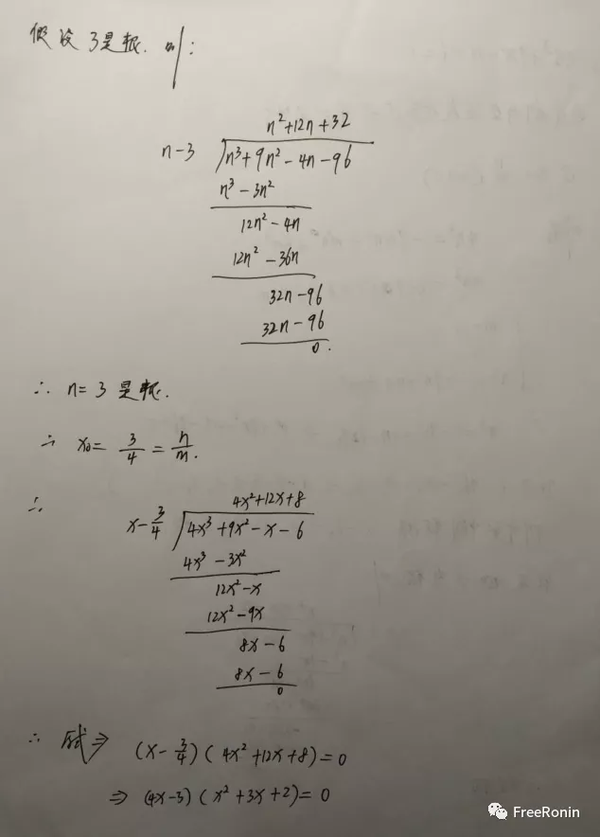 假设 3是根. 则:
n²+12n+32
n-3 n³+9n²-4n-96
n³-3n²
12n²-4n
12n²-36n
32n-96
32n-96
0.
∴ n=3 是根.
∴ x₀= 3/4 = n/m.
∴
4x²+12x+8
x-3/4 4x³+9x²-x-6
4x³-3x²
12x²-x
12x²-9x
8x-6
8x-6
0
∴ 原式⇒ (x-3/4)(4x²+12x+8)=0
⇒ (4x-3)(x²+3x+2)=0
FreeRonin